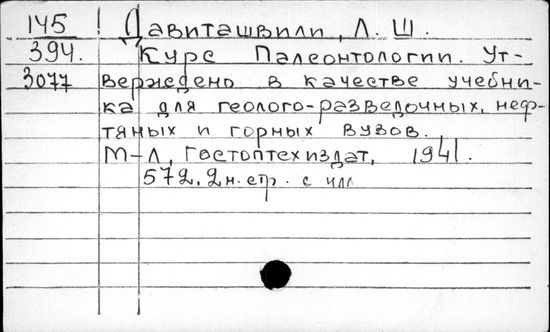 145 ! Давиташвили, Л. Ш.
394. Курс Палеонтологии. Ут-
3077 верждено в качестве учебни-
ка для геолого-разведочных, неф-
тяных и горных вузов.
М-Л, Гостоптехиздат, 1941.
572, 2 н. стр. с илл